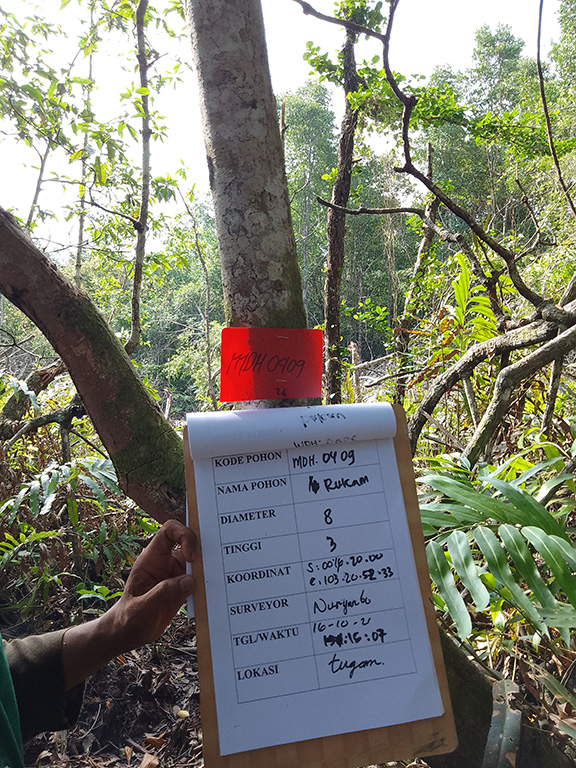 MDH 0409
26
KODE POHON MDH. 0409
NAMA POHON Rukam
DIAMETER 8
TINGGI 3
KOORDINAT S:
e. 103.20.52.33
SURVEYOR Nuryanto
TGL/WAKTU 16-10-2
16:07
LOKASI tugam.